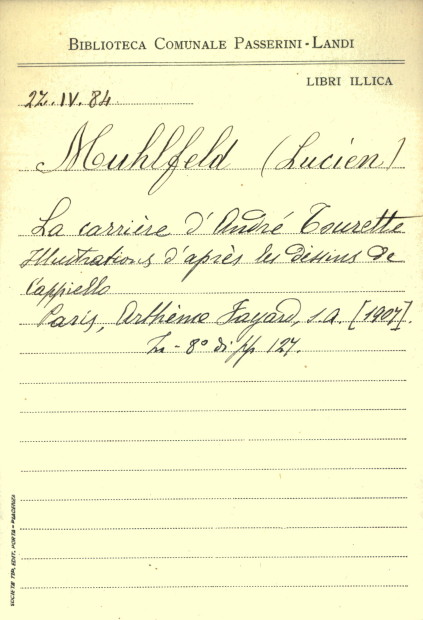 BIBLIOTECA COMUNALE PASSERINI-LANDI
LIBRI ILLICA
22.IV.84
Muhlfeld (Lucien)
La carrière d'André Tourette
Illustrations d'après les dessins de
Cappiello
Paris, Arthème Fayard, s.a. [1907].
In-8° di pp 127.